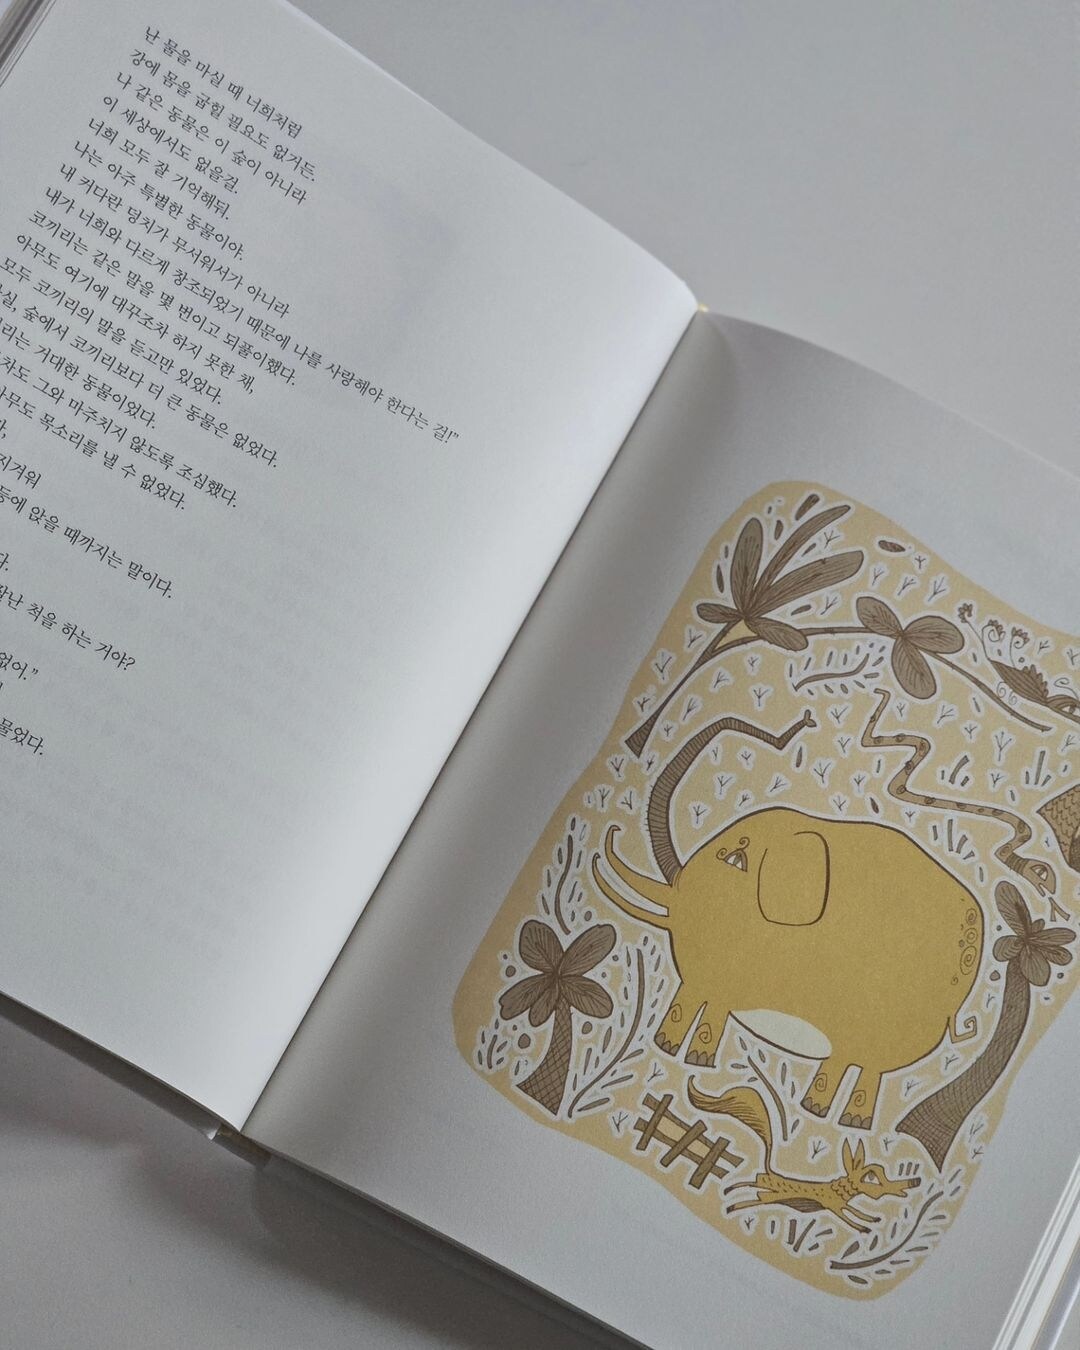 난 물을 마실 때 너희처럼
강에 몸을 굽힐 필요도 없거든.
나 같은 동물은 이 숲이 아니라
이 세상에서도 없을걸.
너희 모두 잘 기억해둬.
나는 아주 특별한 동물이야.
내 커다란 덩치가 무서워서가 아니라
내가 너희와 다르게 창조되었기 때문에 나를 사랑해야 한다는 걸!”
코끼리는 같은 말을 몇 번이고 되풀이했다.
아무도 여기에 대꾸조차 하지 못한 채,
모두 코끼리의 말을 듣고만 있었다.
숲에서 코끼리보다 더 큰 동물은 없었다.
거대한 동물이었다.
그와 마주치지 않도록 조심했다.
목소리를 낼 수 없었다.
지겨워
등에 앉을 때까지는 말이다.
다.
잘난 척을 하는 거야?
없어.”
물었다.